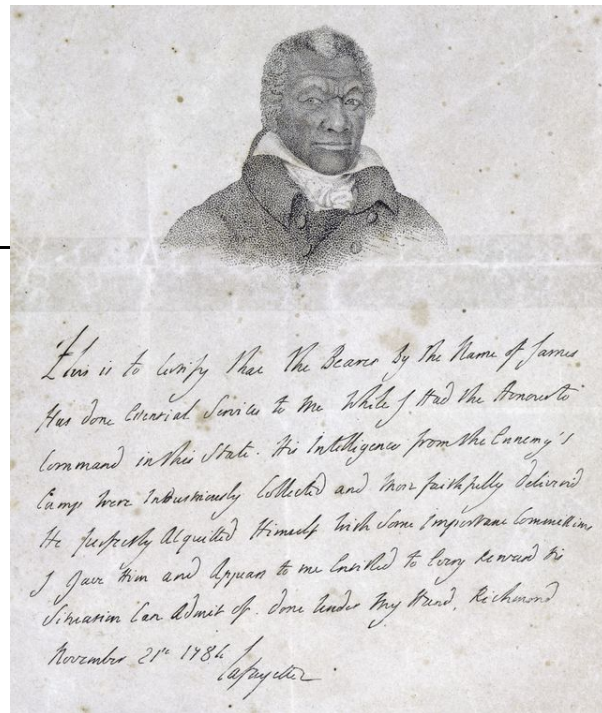 This is to Certify that the Bearer By the Name of James
Has done Essential Services to me While I Had the Honour to
Command in this State. His Intelligences from the Ennemy's
Camp were Industriously Collected and More faithfully delivered
He perfectly Acquitted Himself with Some Important Commissions
I Gave Him and Appears to me Entitled to Every Reward his
Situation Can Admit of. Done Under my Hand, Richmond
November 21st 1784
Lafayette